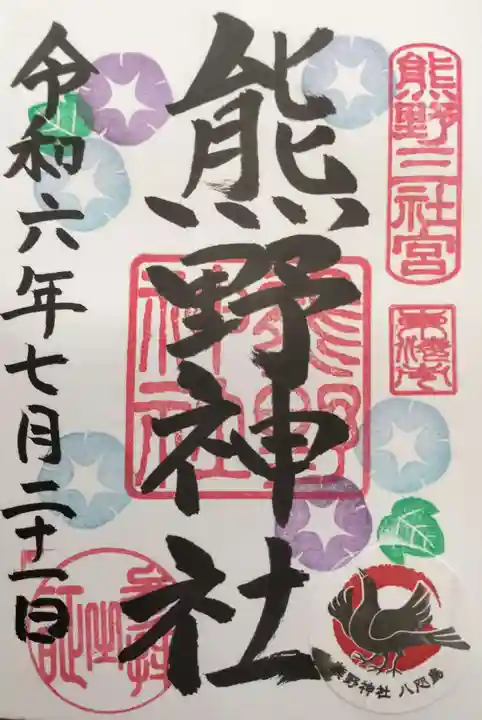 熊野三社宮
熊野神社
熊野
神社
令和六年七月二十一日
熊野神社 八咫烏